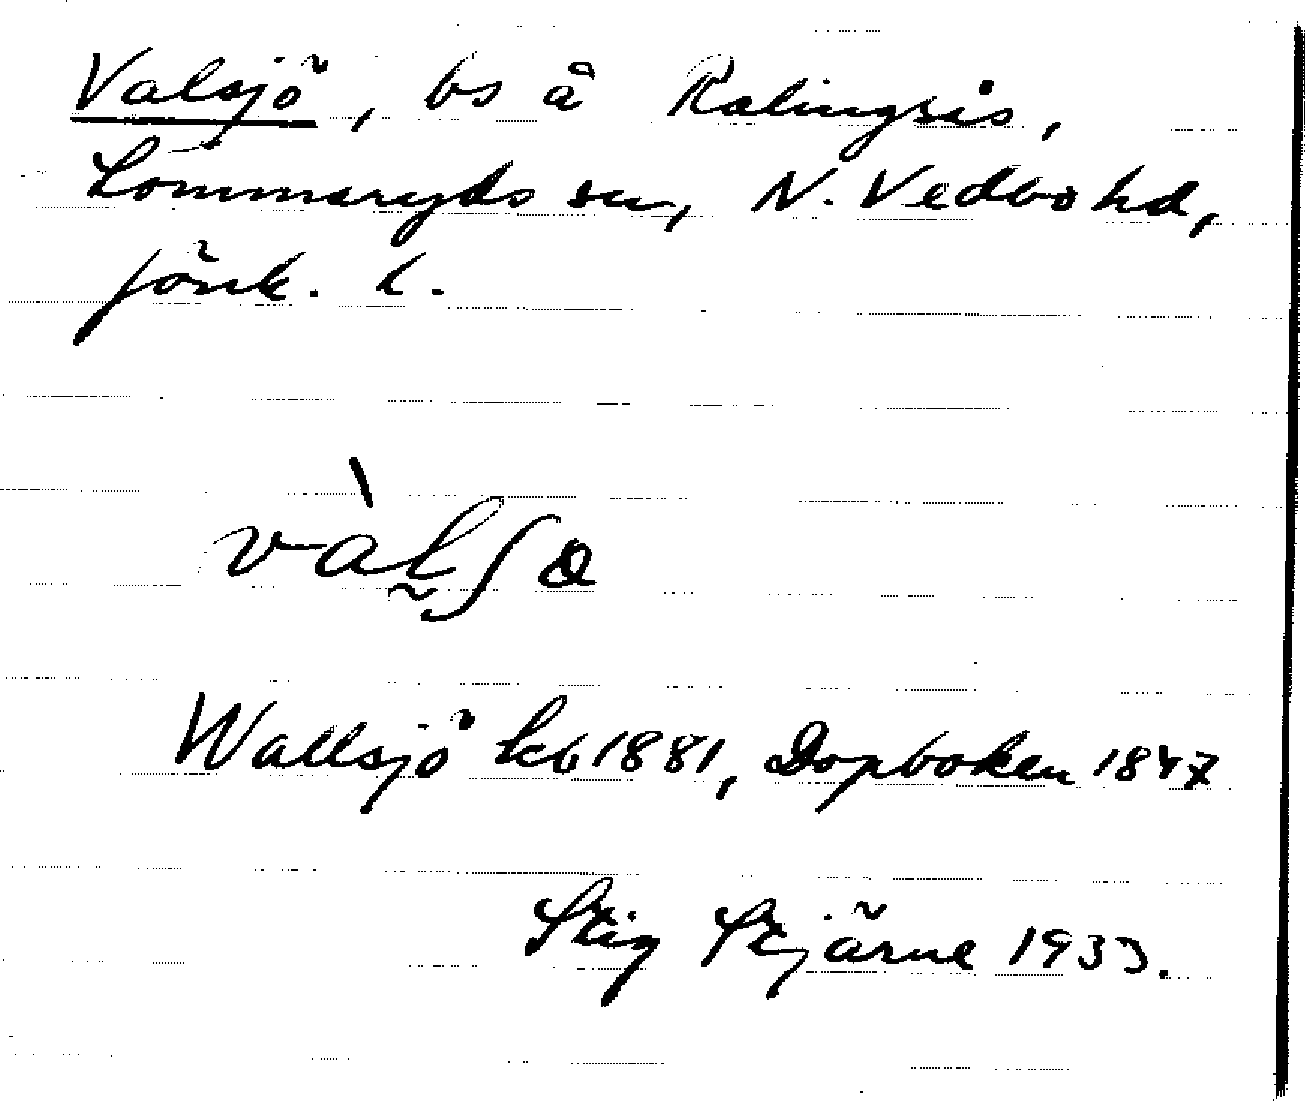 Valsjö, bs å Ralingsis,
Lommaryds sn, N. Vedbo hd,
Jönk. l.
vàlʃɵ
Wallsjö kb 1881, Dopboken 1847
Stig Stjärne 1933.